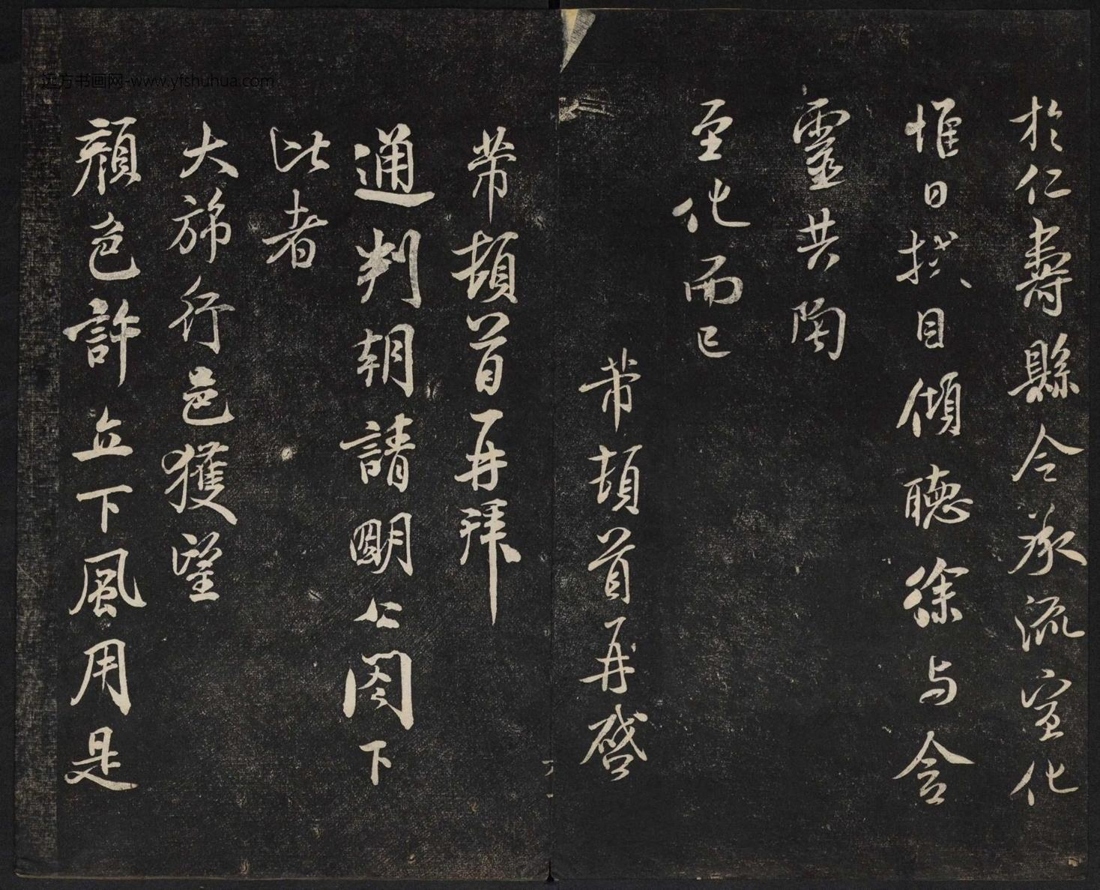 於仁壽縣令承流宣化
惟日拭目傾聽徐与含
靈共陶
至化而已
芾頓首再啓
芾頓首再拜
通判朝請明公閤下
比者
大旆行色獲望
顔色許立下風用是
远方书画网-www.yfshuhua.com